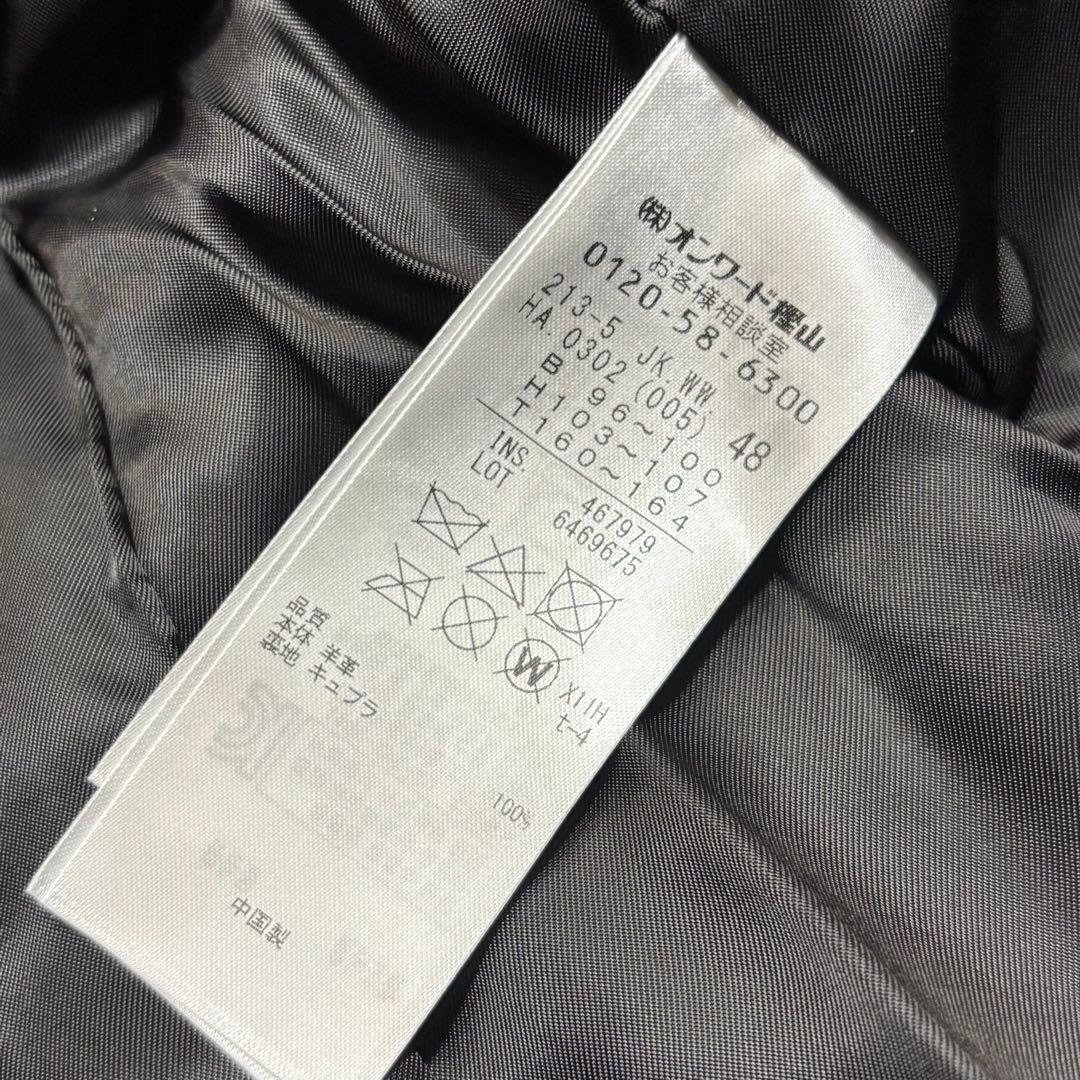 (株)オンワード樫山
お客様相談室
0120-58-6300
213-5 JK.WW. 48
HA.0302(005)
B 96~100
H103~107
T160~164
INS. 467979
LOT 6469675
W
X11H
t-4
品質
本体 羊革
裏地 キュプラ 100%
中国製